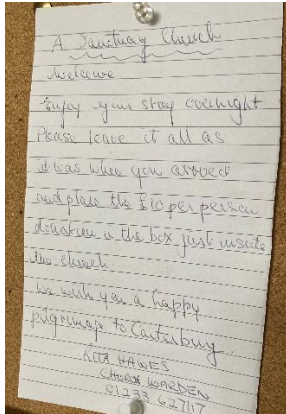 A Sanctuary Church
Welcome
Enjoy your stay overnight
Please leave it all as
it was when you arrived
and place the £10 per person
donation in the box just inside
the church.
We wish you a happy
pilgrimage to Canterbury
HAWES
CHURCH WARDEN
01233 627117